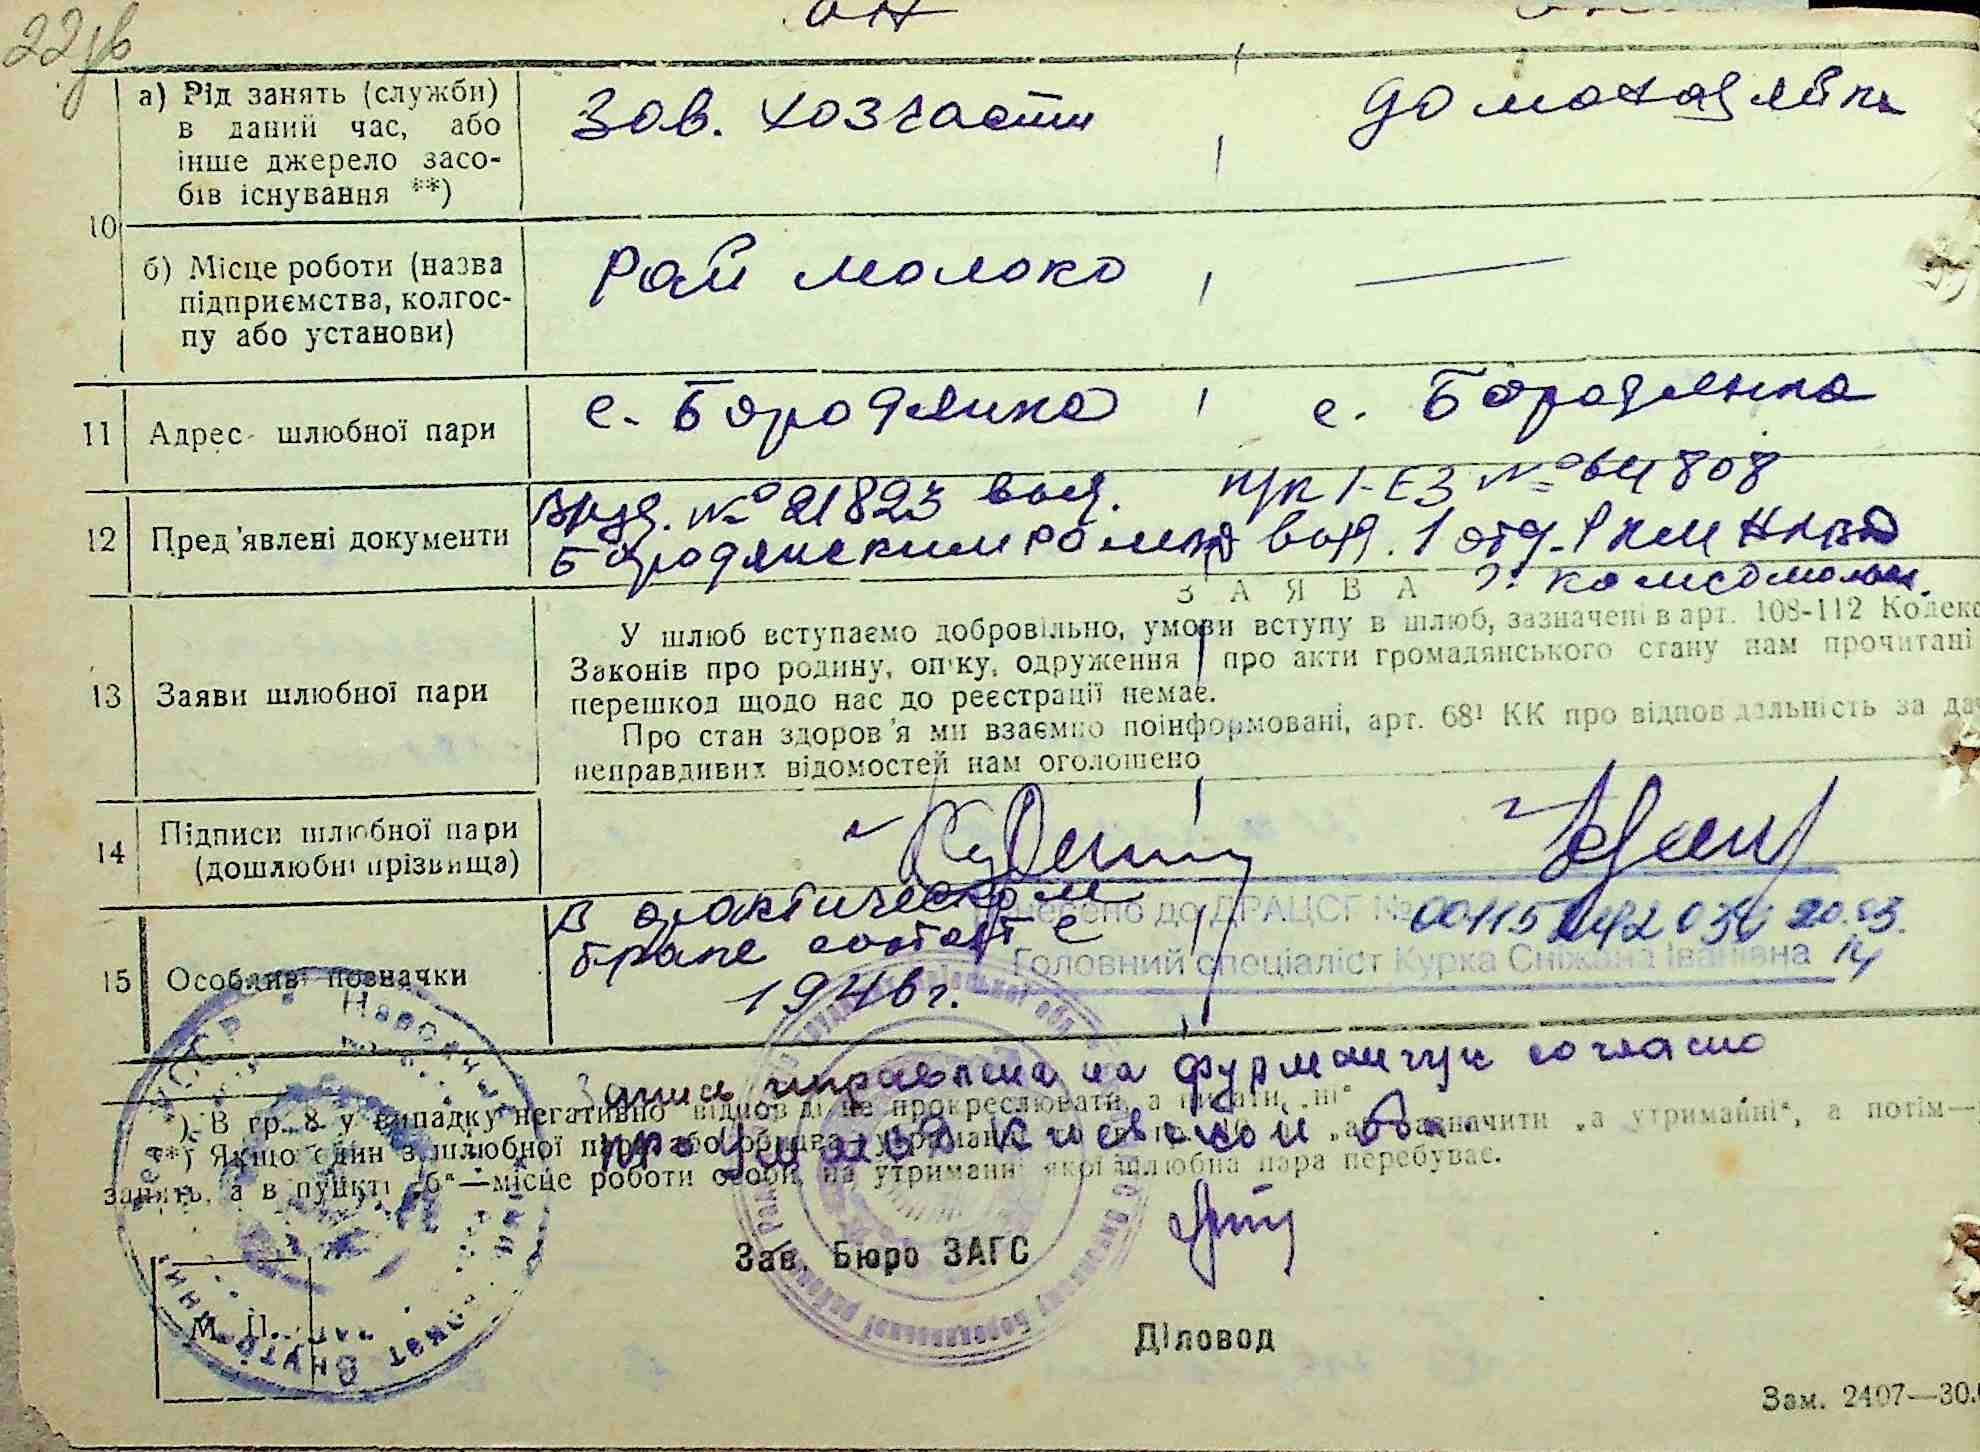 22зв
а) Рід занять (служби) в даний час, або інше джерело засобів існування **)
Зав. хозчасти
домохозяйка
10
б) Місце роботи (назва підприємства, колгоспу або установи)
Рай молоко
—
11 Адрес шлюбної пари
с. Бородянка
с. Бородянка
12 Пред'явлені документи
№ 21823 выд.
Бородянским
п/п I-ЕЗ № 641808
выд. 1 отд. РКМ НКВД
г. Комсомольск.
ЗАЯВА
13 Заяви шлюбної пари
У шлюб вступаємо добровільно, умови вступу в шлюб, зазначені в арт. 108-112 Кодекс
Законів про родину, опіку, одруження і про акти громадянського стану нам прочитані
перешкод щодо нас до реєстрації немає.
Про стан здоров'я ми взаємно поінформовані, арт. 68¹ КК про відповідальність за да
неправдивих відомостей нам оголошено
14 Підписи шлюбної пари
(дошлюбні прізвища)
15 Особливі позначки
В фактическом
браке состоят с
1946 г.
до ДРАЦСГ № 20.03.
Головний спеціаліст Курка Сніжана Іванівна 14
Запись исправлена на Фурманчук согласно
Киевской обл.
*) В гр. 8 у випадку негативно відповіді не прокреслювати, а писати „ні“
**) Якщо один з шлюбної пари або обидва зазначити „а утриманні“, а потім—
занять, а в пункті „б“—місце роботи особи, на утриманні якої шлюбна пара перебуває.
Зав. Бюро ЗАГС
М. П.
Діловод
Зам. 2407—30.